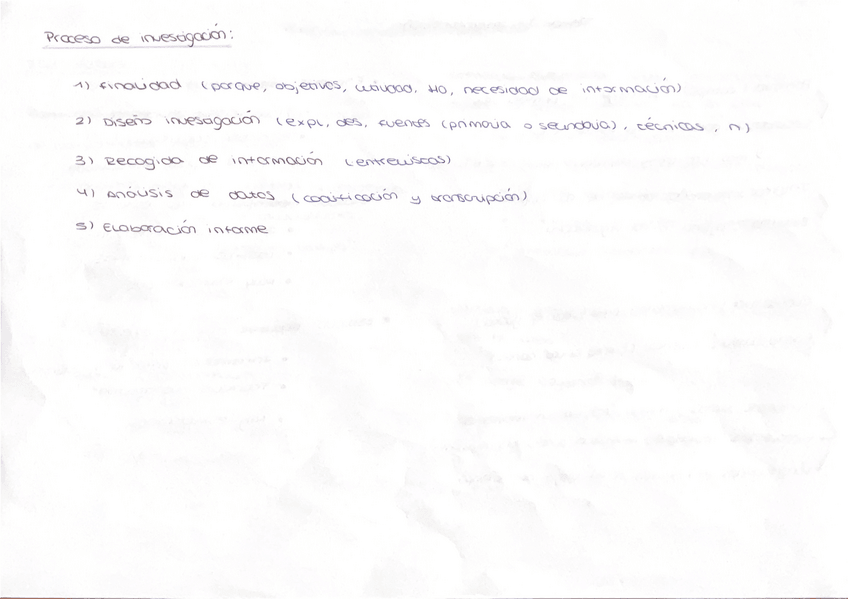 Proceso de investigación:
1) Finalidad (porque, objetivos, utilidad, H0, necesidad de información)
2) Diseño investigación (expl, des, fuentes (primaria o secundaria), técnicas, n)
3) Recogida de información (entrevistas)
4) Análisis de datos (codificación y transcripción)
5) Elaboración informe